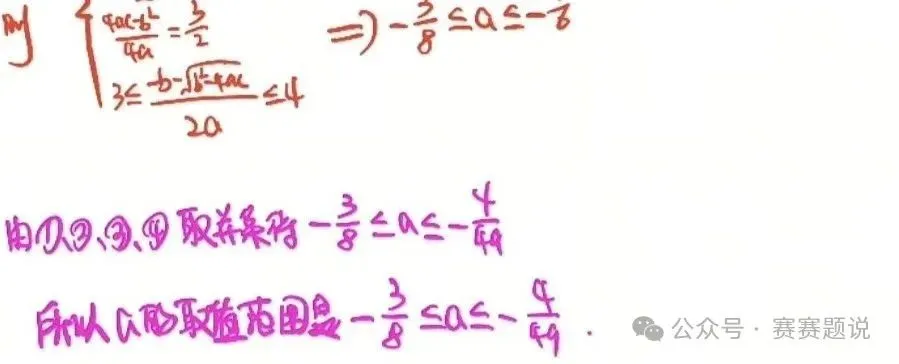 则 { (4ac-b²)/4a = 3/2
3≤ (-b-√(b²-4ac))/2a ≤4
=> -3/8 ≤ a ≤ -
由①、②、③、④取并集得 -3/8 ≤ a ≤ -4/49
所以a的取值范围是 -3/8 ≤ a ≤ -4/49 .
公众号·赛赛题说